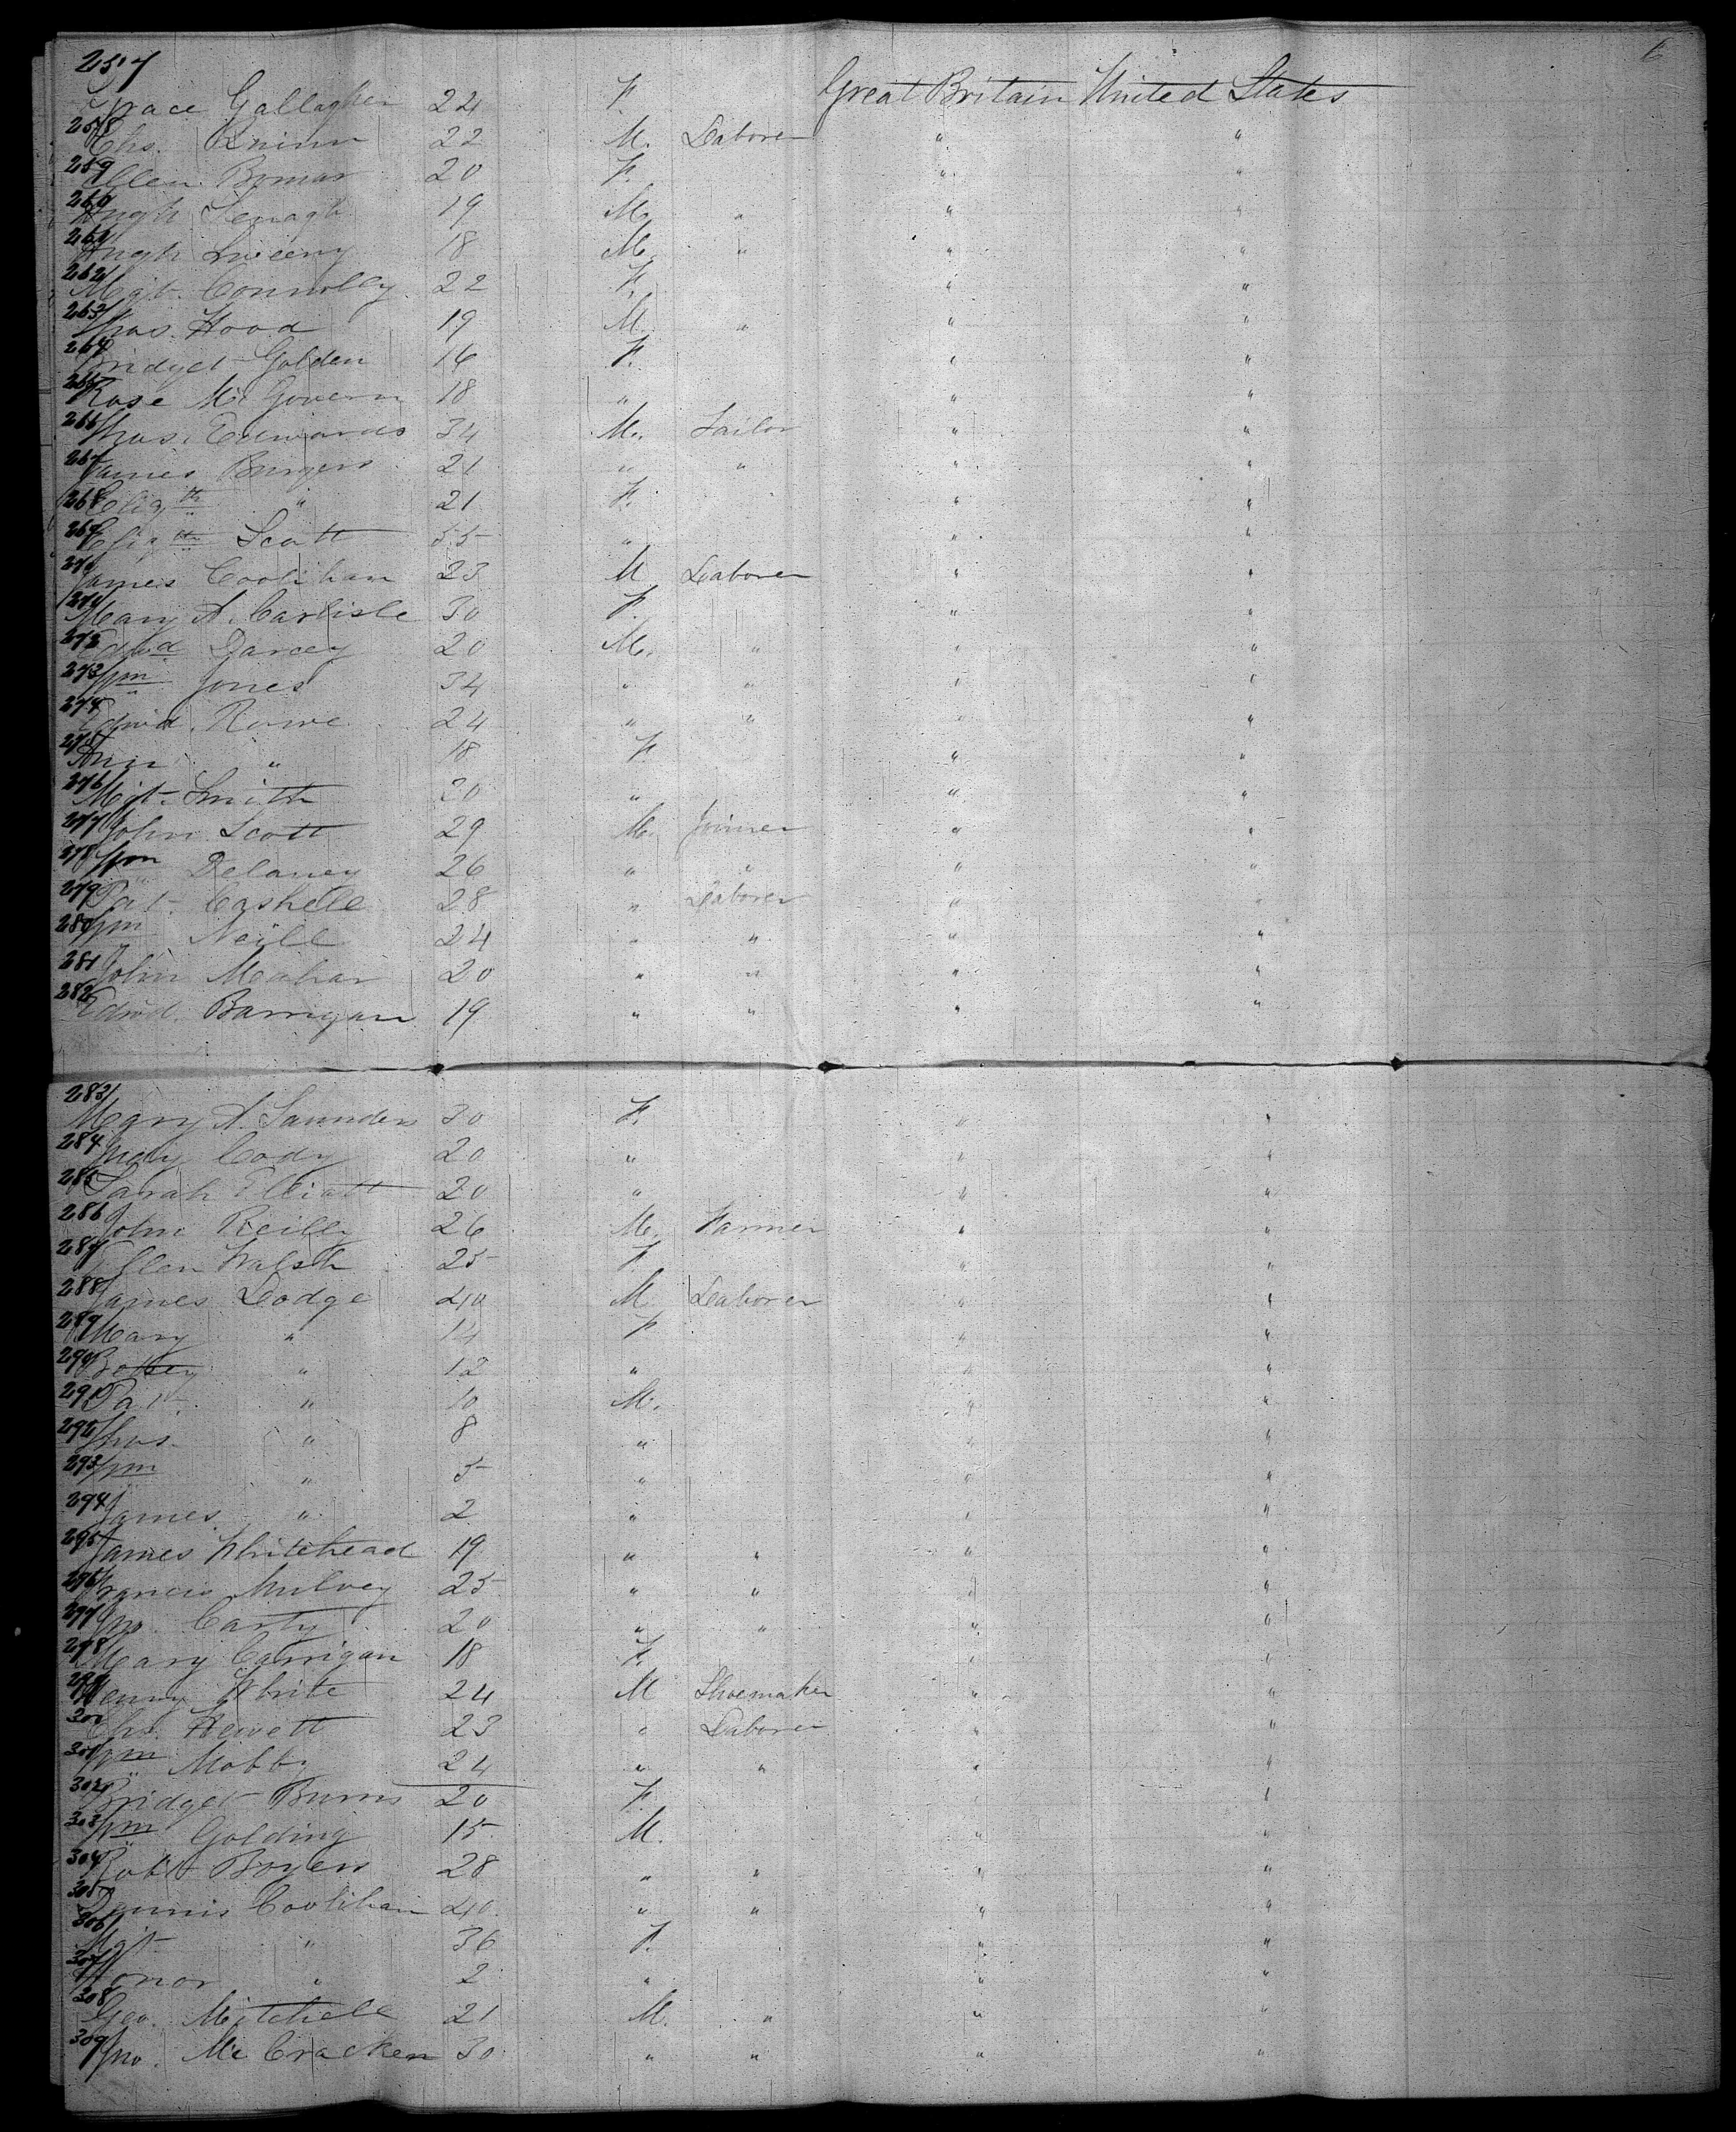 257 Grace Gallagher 24 F. Great Britain United States
258 Chs. Quinn 22 M. Laborer " "
259 Ellen 20 F. " "
260 Hugh 19 M. " " "
261 Hugh Sweeny 18 M. " " "
262 Mgt. Connolly 22 F. " "
263 Thos. Hood 19 M. " " "
264 Bridget Golden 16 F. " "
265 Rose McGovern 18 " " "
266 Thos. Edwards 34 M. Tailor " "
267 James Burgess 21 " " " "
268 Eliz.th " 21 F. " "
269 Eliz.th Scott 55 " " "
270 James Coolihan 23 M. Laborer " "
271 Mary A. Carlisle 30 F. " "
272 Edwd Darcey 20 M. " " "
273 Wm Jones 34 " " " "
274 Edwd. Rowe 24 " " " "
275 Ann " 18 F. " "
276 Mgt. Smith 20 " " "
277 John Scott 29 M. Joiner " "
278 Wm Delaney 26 " " " "
279 Pat. Cashell 28 " Laborer " "
280 Wm Neill 24 " " " "
281 John Meahar 20 " " " "
282 Edwd. Barrigan 19 " " " "
283 Mary A. Saunders 30 F. " "
284 Mary Cody 20 " " "
285 Sarah Elliott 20 " " "
286 John Reilly 26 M. Farmer " "
287 Ellen Walsh 25 F. " "
288 James Dodge 40 M. Laborer " "
289 Mary " 14 F " "
290 Betsey " 12 " " "
291 Pat. " 10 M. " "
292 Thos. " 8 " " "
293 Wm " 5 " " "
294 James " 2 " " "
295 James Whitehead 19 " " " "
296 Francis Mulvey 25 " " " "
297 Jno. Carty 20 " " " "
298 Mary Carrigan 18 F. " "
299 Henry White 24 M Shoemaker " "
300 Chs. Hewett 23 " Laborer " "
301 Wm Mobby 24 " " " "
302 Bridget Burns 20 F. " "
303 Wm Golding 15 M. " "
304 Robt Boyers 28 " " " "
305 Dennis Coolihan 40 " " " "
306 Mgt. " 36 F. " "
307 Honor " 2 " " "
308 Geo. Mitchell 21 M. " " "
309 Jno. McCracken 30 " " " "